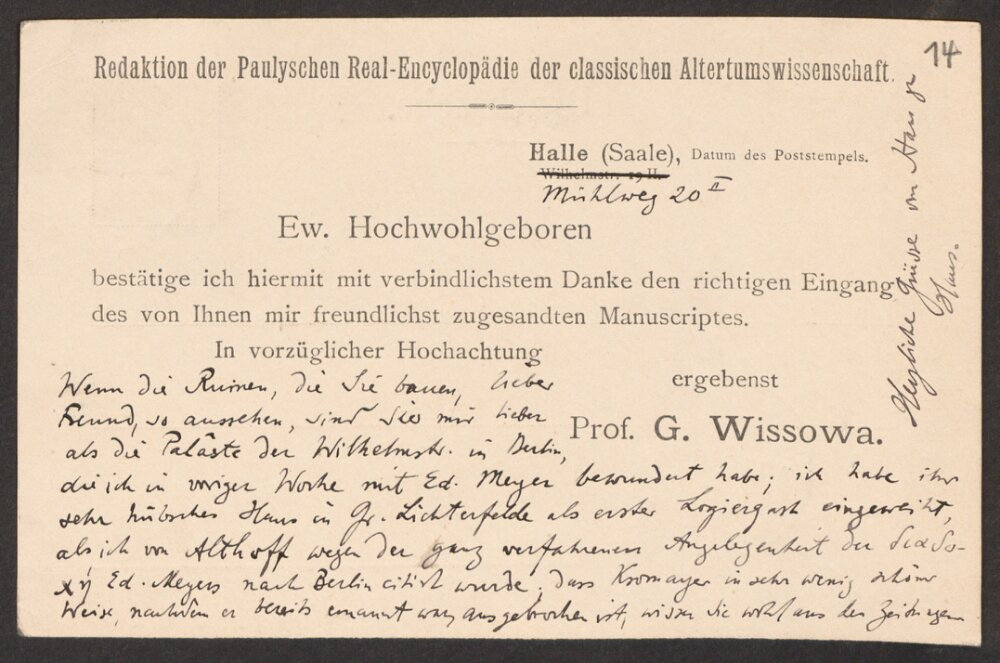 14
Redaktion der Paulyschen Real-Encyclopädie der classischen Altertumswissenschaft.
Halle (Saale), Datum des Poststempels.
Wilhelmstr. 19 II.
Mühlweg 20 II
Ew. Hochwohlgeboren
bestätige ich hiermit mit verbindlichstem Danke den richtigen Eingang
des von Ihnen mir freundlichst zugesandten Manuscriptes.
In vorzüglicher Hochachtung
ergebenst
Prof. G. Wissowa.
Wenn die Ruinen, die Sie bauen, lieber
Freund, so aussehen, sind Sie mir lieber
als die Paläste der Wilhelmstr. in Berlin,
die ich in voriger Woche mit Ed. Meyer bewundert habe; ich habe ihr
sehr hübsches Haus in Gr. Lichterfelde als erster Logiergast eingeweiht,
als ich von Althoff wegen der ganz verfahrenen Angelegenheit der διαδο-
χή Ed. Meyers nach Berlin citirt wurde; dass Kromayer in sehr wenig schöner
Weise, nachdem er bereits ernannt war, ausgebrochen ist, wissen Sie wohl aus den Zeitungen
Herzliche Grüsse von Haus zu
Haus.